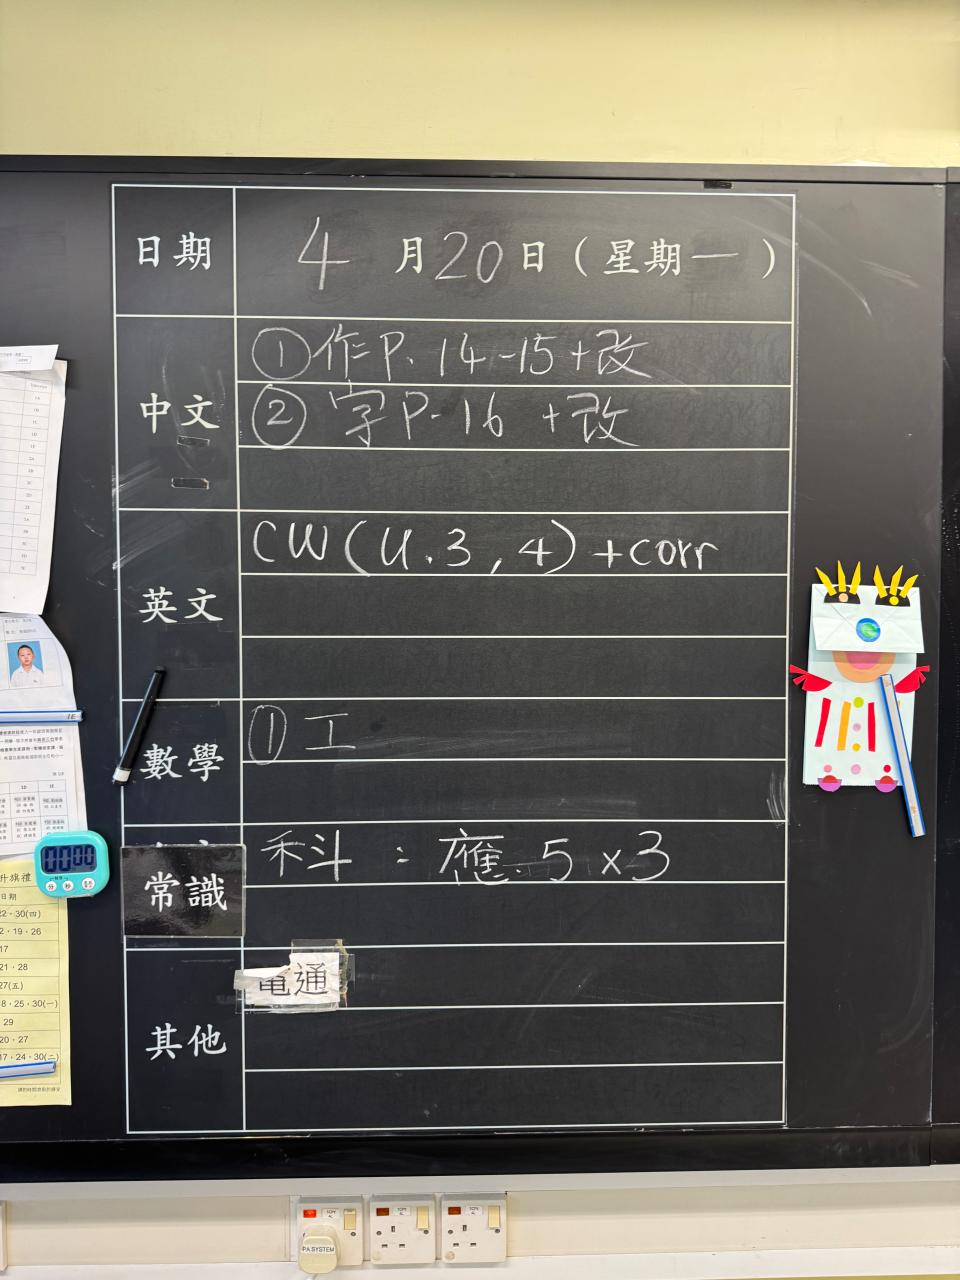 日期 4月20日(星期一)
中文 ①作P.14-15+改
②字P.16 +改
英文 CW(U.3,4)+corr
數學 ①工
常識 科:應.5x3
其他 電通
1E
00:00
分 秒
升旗禮
日期
22,30(四)
2,19,26
17
21,28
27(五)
8,25,30(一)
29
20,27
17,24,30(二)
PA SYSTEM